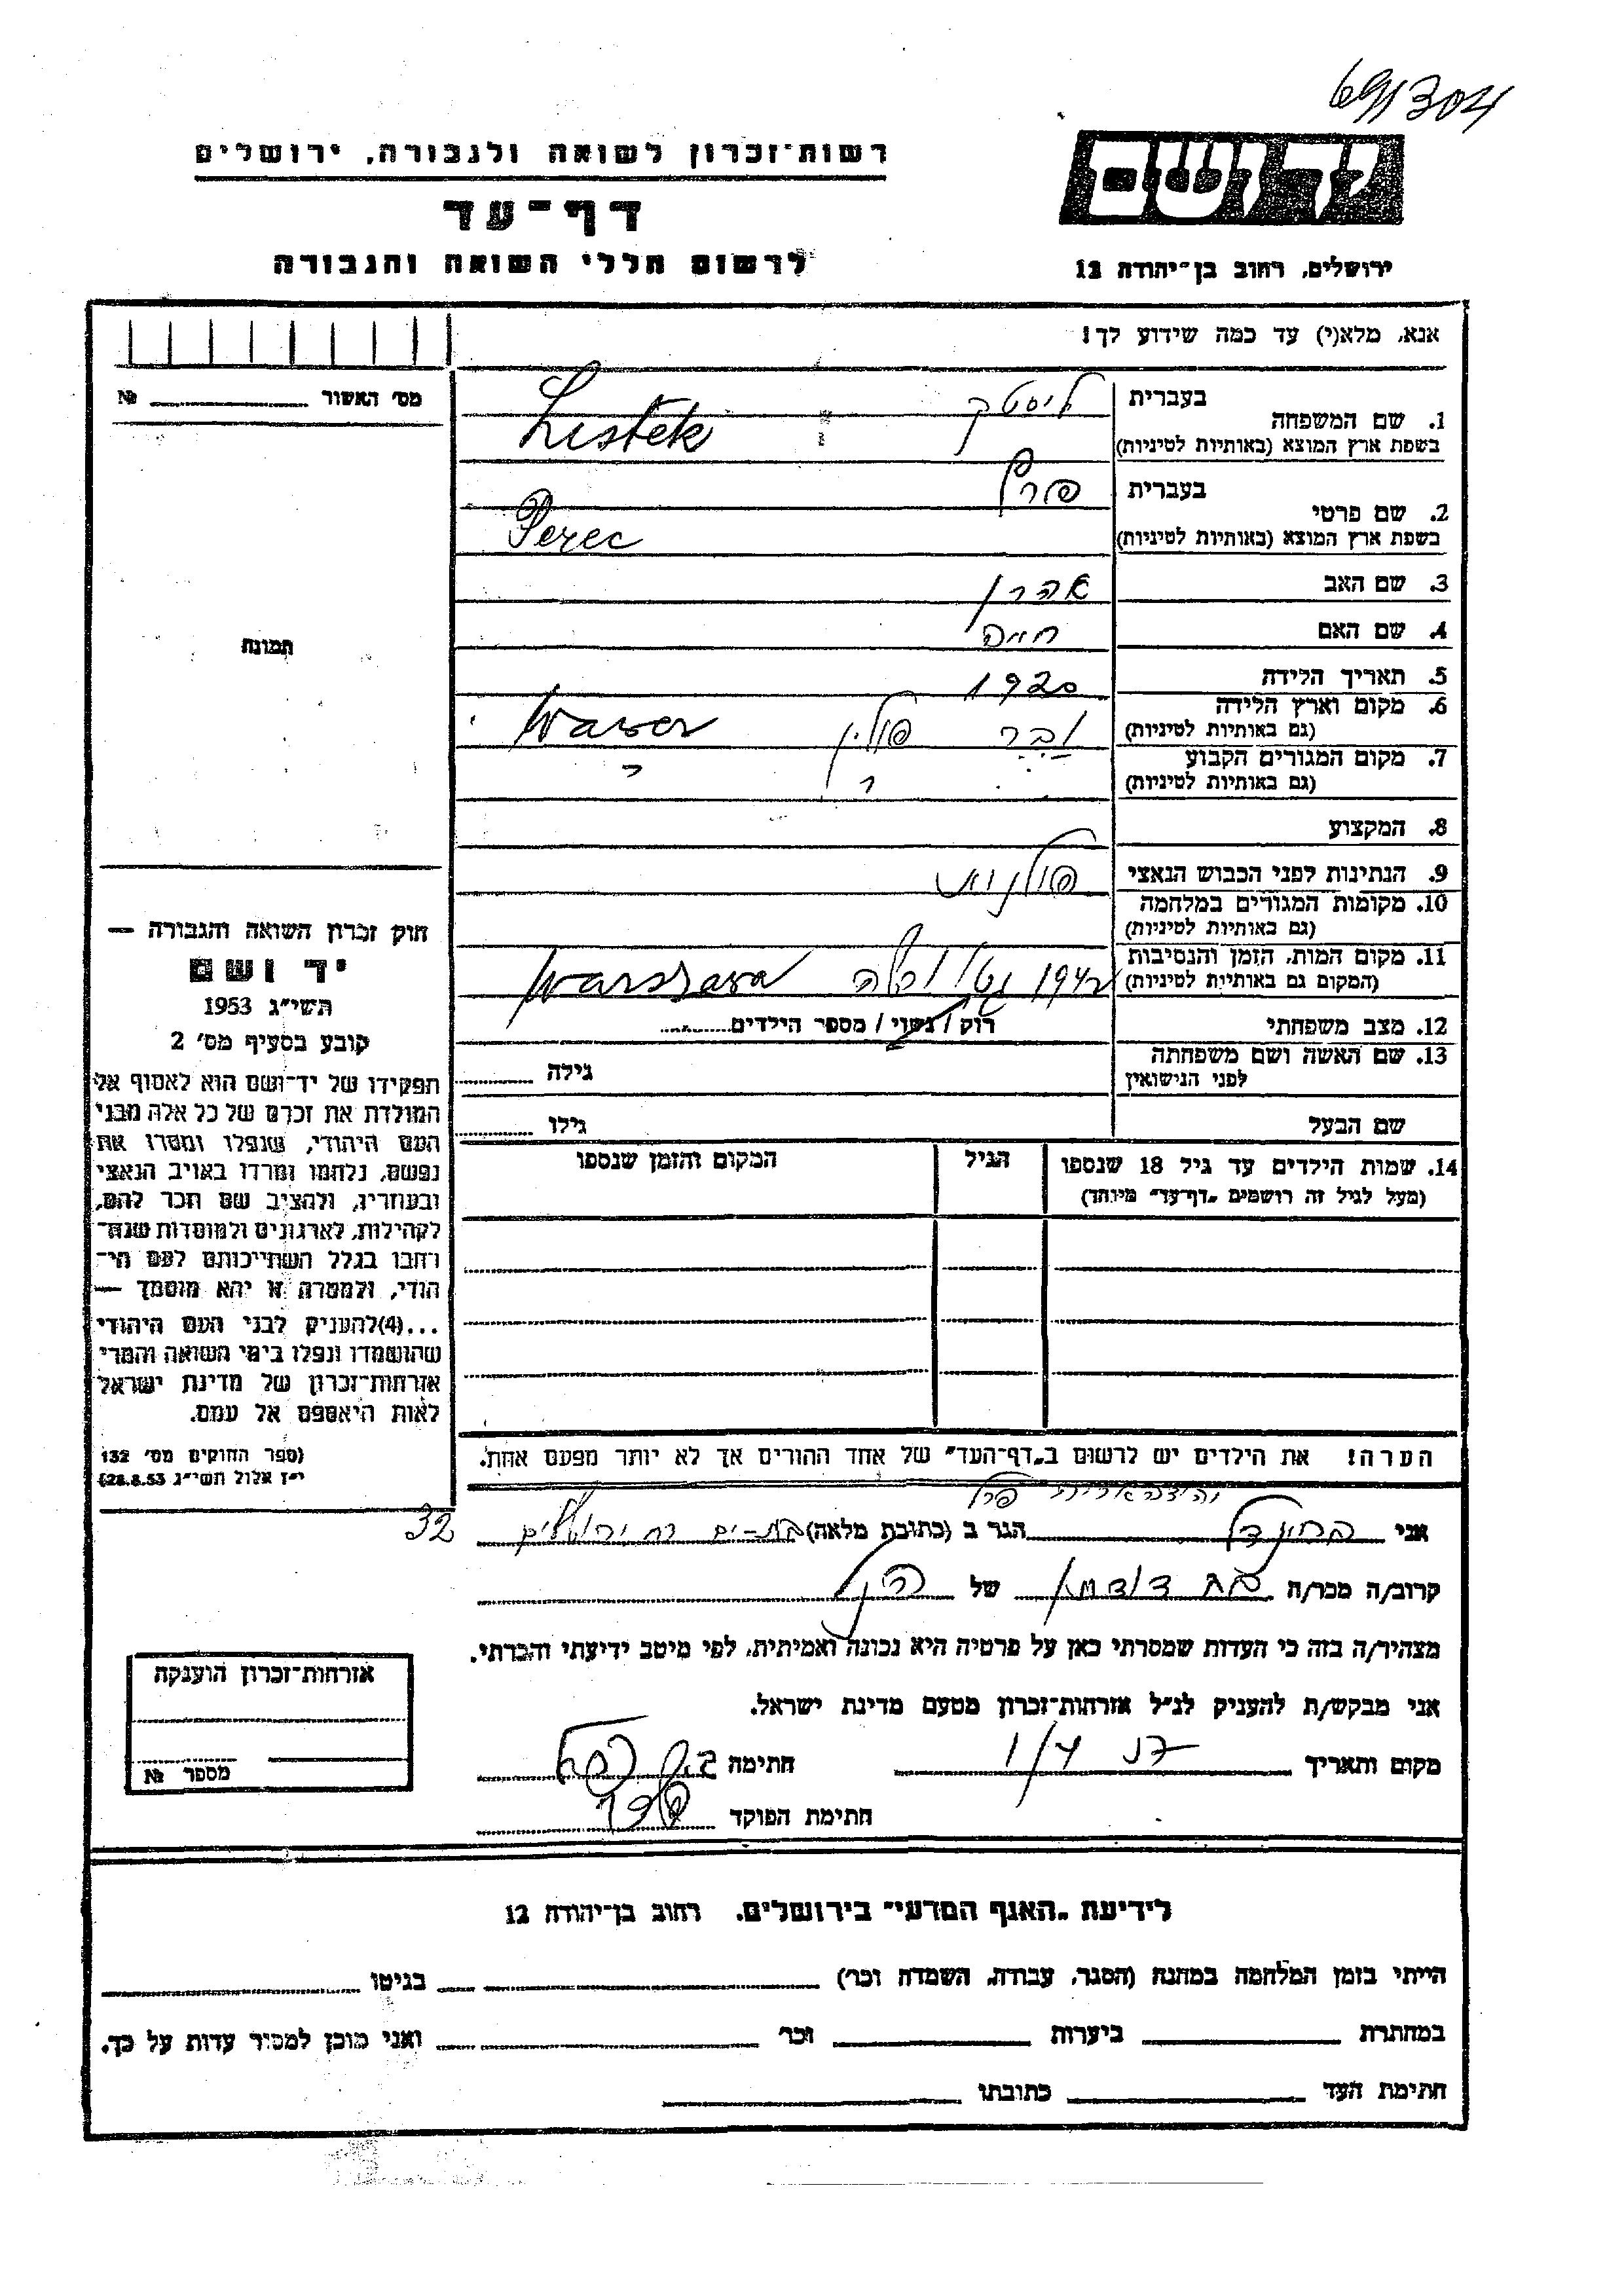 69/304
רשות־זכרון לשואה ולגבורה, ירושלים
יד ושם
דף־עד
לרשום חללי השואה והגבורה
ירושלים, רחוב בן־יהודה 12
אנא, מלא(י) עד כמה שידוע לך!
מס' האשור № 
1. שם המשפחה
בעברית ליסטק
בשפת ארץ המוצא (באותיות לטיניות) Listek
2. שם פרטי
בעברית פרץ
בשפת ארץ המוצא (באותיות לטיניות) Perec
3. שם האב אהרן
4. שם האם חיה
תמונה
5. תאריך הלידה 1920
6. מקום וארץ הלידה
(גם באותיות לטיניות) פולין Wawer
7. מקום המגורים הקבוע
(גם באותיות לטיניות)
8. המקצוע
9. הנתינות לפני הכבוש הנאצי פולנית
10. מקומות המגורים במלחמה
(גם באותיות לטיניות)
11. מקום המות, הזמן והנסיבות
(המקום גם באותיות לטיניות) 1942 גטו Warszawa
12. מצב משפחתי רוק / נשוי / מספר הילדים
13. שם האשה ושם משפחתה
לפני הנישואין גילה
שם הבעל גילו
14. שמות הילדים עד גיל 18 שנספו
(מעל לגיל זה רושמים „דף־עד” מיוחד)
הגיל
המקום והזמן שנספו
חוק זכרון השואה והגבורה —
יד ושם
תשי״ג 1953
קובע בסעיף מס' 2
תפקידו של יד־ושם הוא לאסוף אל
המולדת את זכרם של כל אלה מבני
העם היהודי, שנפלו ומסרו את
נפשם, נלחמו ומרדו באויב הנאצי
ובעוזריו, ולהציב שם וזכר להם,
לקהילות, לארגונים ולמוסדות שנח־
רחבו בגלל השתייכותם לעם הי־
הודי, ולמטרה זו יהא מוסמך —
...(4)להעניק לבני העם היהודי
שהושמדו ונפלו בימי השואה והמרי
אזרחות־זכרון של מדינת ישראל
לאות היאספם אל עמם.
(ספר החוקים מס' 132
י״ז אלול תשי״ג 28.8.53)
הערה! את הילדים יש לרשום ב„דף־העד” של אחד ההורים אך לא יותר מפעם אחת.
אני הגר ב (כתובת מלאה) בת-ים רח ירושלים 32
קרוב/ה מכר/ה בת דודתו של פרץ
מצהיר/ה בזה כי העדות שמסרתי כאן על פרטיה היא נכונה ואמיתית, לפי מיטב ידיעתי והכרתי.
אני מבקש/ת להעניק לנ״ל אזרחות־זכרון מטעם מדינת ישראל.
מקום ותאריך 1/4 חתימה
חתימת הפוקד
אזרחות־זכרון הוענקה
מספר №
לידיעת „האגף המדעי” בירושלים, רחוב בן־יהודה 12
הייתי בזמן המלחמה במחנה (הסגר, עבודה, השמדה וכר') בגיטו
במחתרת ביערות וכר' ואני מוכן למסיר עדות על כך.
חתימת העד כתובתו